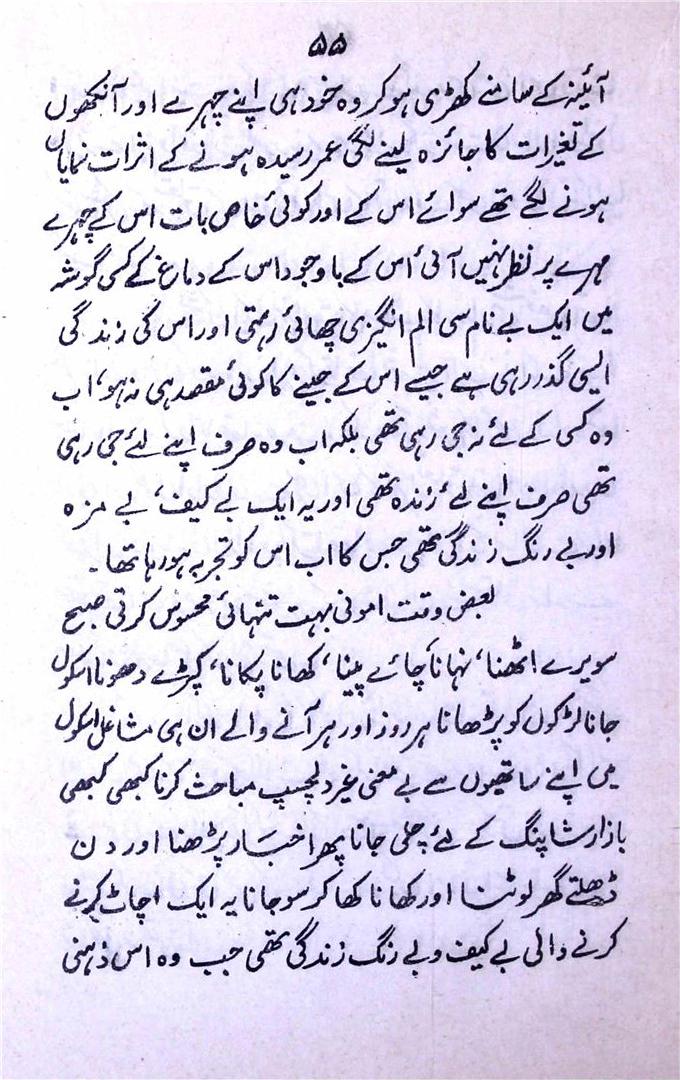 ۵۵
آئینہ کے سامنے کھڑی ہو کر وہ خود ہی اپنے چہرے اور آنکھوں
کے تغیرات کا جائزہ لینے لگی عمر رسیدہ ہونے کے اثرات نمایاں
ہونے لگے تھے سوائے اس کے اور کوئی خاص بات اس کے چہرے
مہرے پر نظر نہیں آئی اس کے باوجود اس کے دماغ کے کسی گوشہ
میں ایک بے نام سی الم انگیزی چھائی رہتی اور اس کی زندگی
ایسی گذر رہی ہے جیسے اس کے جینے کا کوئی مقصد ہی نہ ہو، اب
وہ کسی کے لئے نہ جی رہی تھی بلکہ اب وہ صرف اپنے لئے جی رہی
تھی صرف اپنے لئے زندہ تھی اور یہ ایک بے کیف، بے مزہ
اور بے رنگ زندگی تھی جس کا اب اس کو تجربہ ہو رہا تھا۔
بعض وقت امونی بہت تنہائی محسوس کرتی صبح
سویرے اٹھنا، نہانا چائے پینا، کھانا پکانا، کپڑے دھونا اسکول
جانا لڑکوں کو پڑھانا ہر روز اور ہر آنے والے ان ہی مشاغل اسکول
میں اپنے ساتھیوں سے بے معنی غیر دلچسپ مباحث کرنا کبھی کبھی
بازار شاپنگ کے لئے چلی جانا پھر اخبار پڑھنا اور دن
ڈھلتے گھر لوٹنا اور کھانا کھا کر سو جانا یہ ایک اچاٹ
کرنے والی بے کیف و بے رنگ زندگی تھی جب وہ اس ذہنی